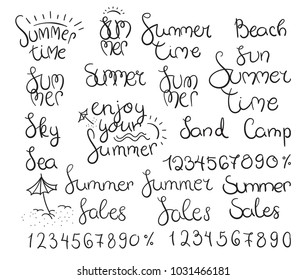 Summer
time
Sum
mer
Summer
time
Beach
Sum
mer
Summer
Sum
mer
Sun
Summer
time
Sky
Sea
enjoy
your
Summer
Sand Camp
1234567890%
Summer
Sales
Summer
Sales
Summer
Sales
1234567890%
1234567890
shutterstock.com · 1031466181